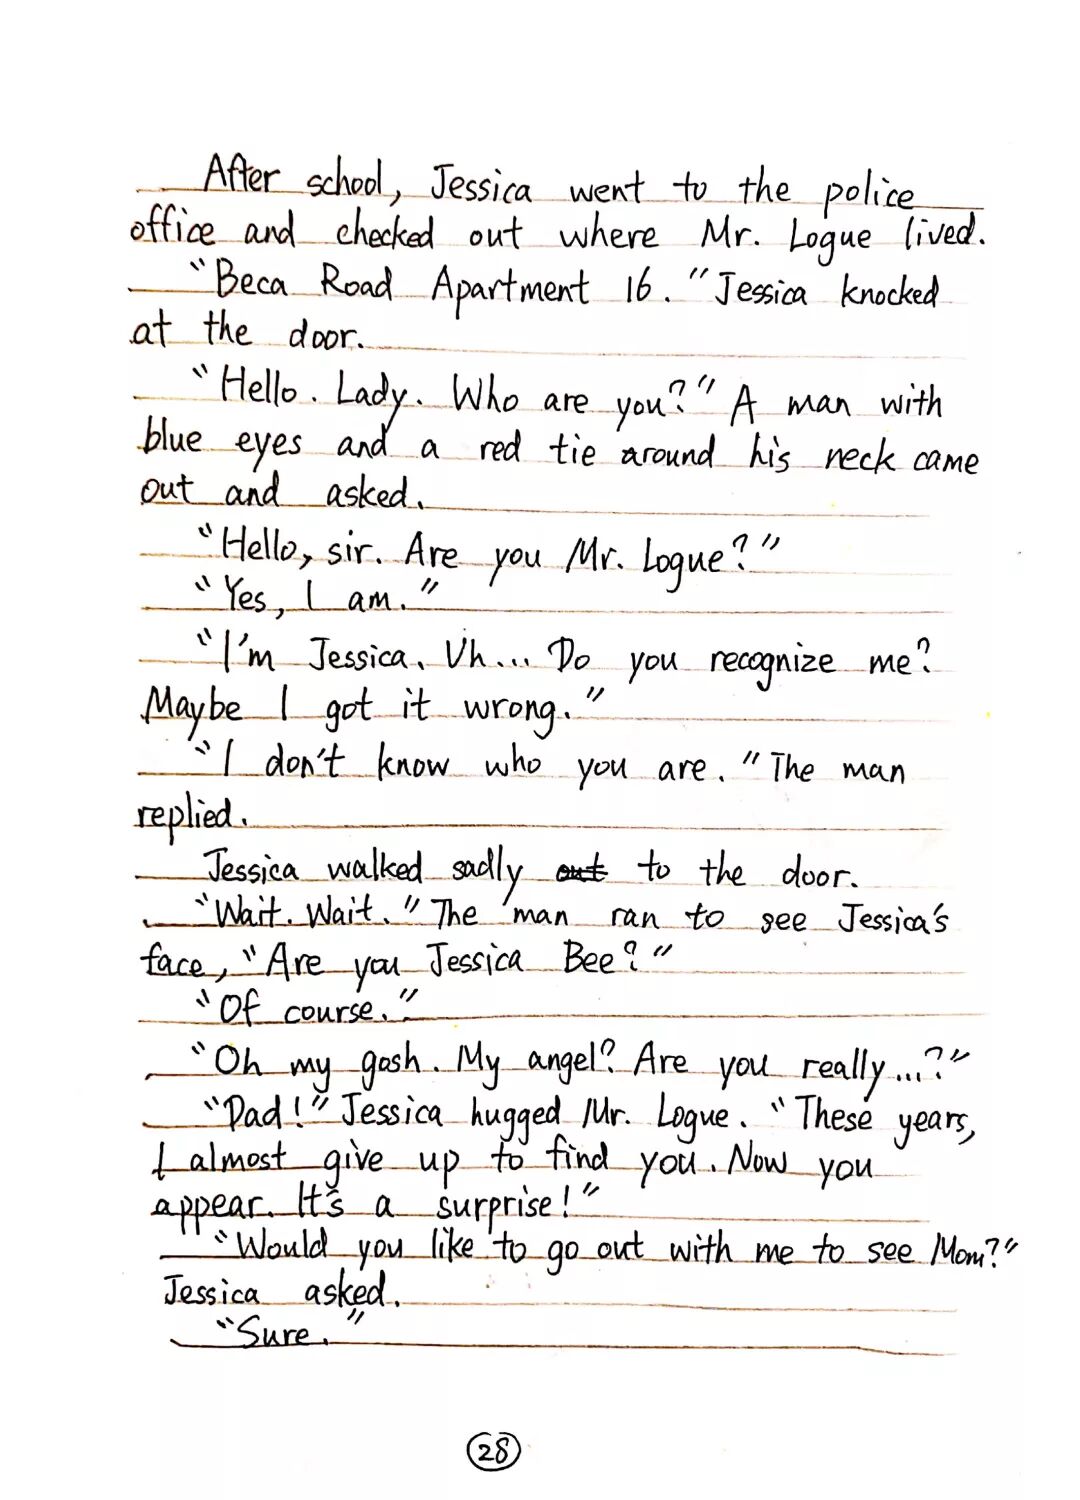 After school, Jessica went to the police
office and checked out where Mr. Logue lived.
"Beca Road Apartment 16." Jessica knocked
at the door.
"Hello. Lady. Who are you?" A man with
blue eyes and a red tie around his neck came
out and asked.
"Hello, sir. Are you Mr. Logue?"
"Yes, I am."
"I'm Jessica. Uh... Do you recognize me?
Maybe I got it wrong."
"I don't know who you are." The man
replied.
Jessica walked sadly out to the door.
"Wait. Wait." The man ran to see Jessica's
face, "Are you Jessica Bee?"
"Of course."
"Oh my gosh. My angel? Are you really...?"
"Dad!" Jessica hugged Mr. Logue. "These years,
I almost give up to find you. Now you
appear. It's a surprise!"
"Would you like to go out with me to see Mom?"
Jessica asked.
"Sure."
28